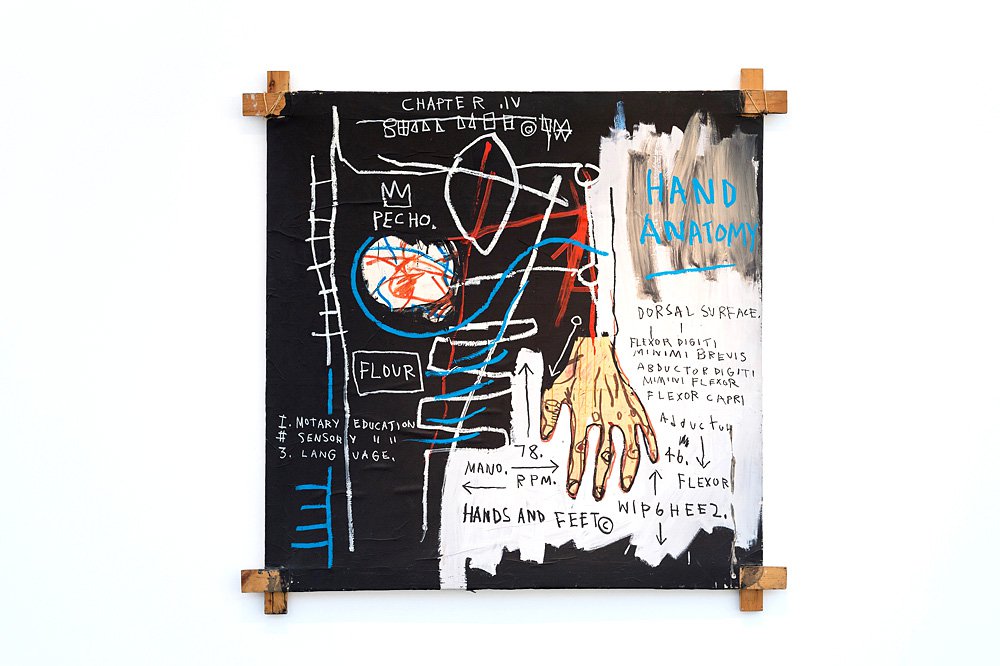 CHAPTER .IV
©
PECHO.
FLOUR
I. MOTARY EDUCATION
# SENSORY " "
3. LANGUAGE.
HAND
ANATOMY
DORSAL SURFACE.
FLEXOR DIGITI
MINIMI BREVIS
ABDUCTOR DIGITI
MIMINI FLEXOR
FLEXOR CAPRI
Adductor
46.
FLEXOR
78.
MANO.
RPM.
HANDS AND FEET©